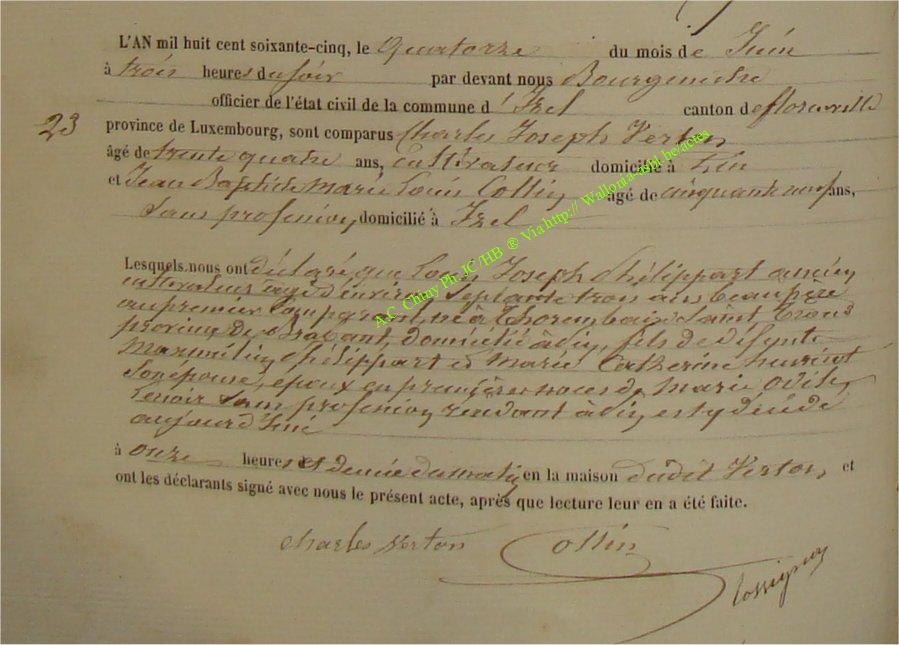 L'AN mil huit cent soixante-cinq, le quatorze du mois de Juin
à trois heures du soir par devant nous Bourgmestre
officier de l'état civil de la commune d'Izel canton de florenville
23
province de Luxembourg, sont comparus Charles Joseph Verton
âgé de trente quatre ans, cultivateur domicilié à
et Jean Baptiste Marie Louis Collin âgé de cinquante neuf ans,
sans profession domicilié à Izel
Lesquels nous ont déclaré que Louis Joseph Philippart ancien
cultivateur agé d'environ septante trois ans beau père
au premier comparant, né à Thorembais Saint Trond
province de Brabant, domicilié à fils de défunts
Maximilien Philippart et Marie Catherine
son épouse, époux en premières noces de Marie Odile
Lenoir sans profession à est y décédé
aujourd'hui
à onze heures et demie du matin en la maison dudit Verton, et
ont les déclarants signé avec nous le présent acte, après que lecture leur en a été faite.
Charles Verton Collin
A.C. Chiny Ph. JC/HB ® Via http://